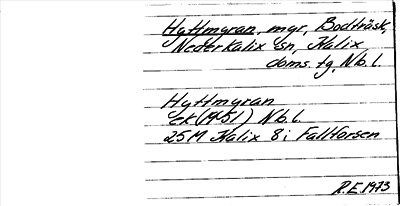 Hyttmyran, myr, Bodträsk,
Nederkalix sn, Kalix
doms. tg, Nb. l.
Hyttmyran
ek (1951) Nb. l.
25M Kalix 8i Fallforsen
R.E. 1973